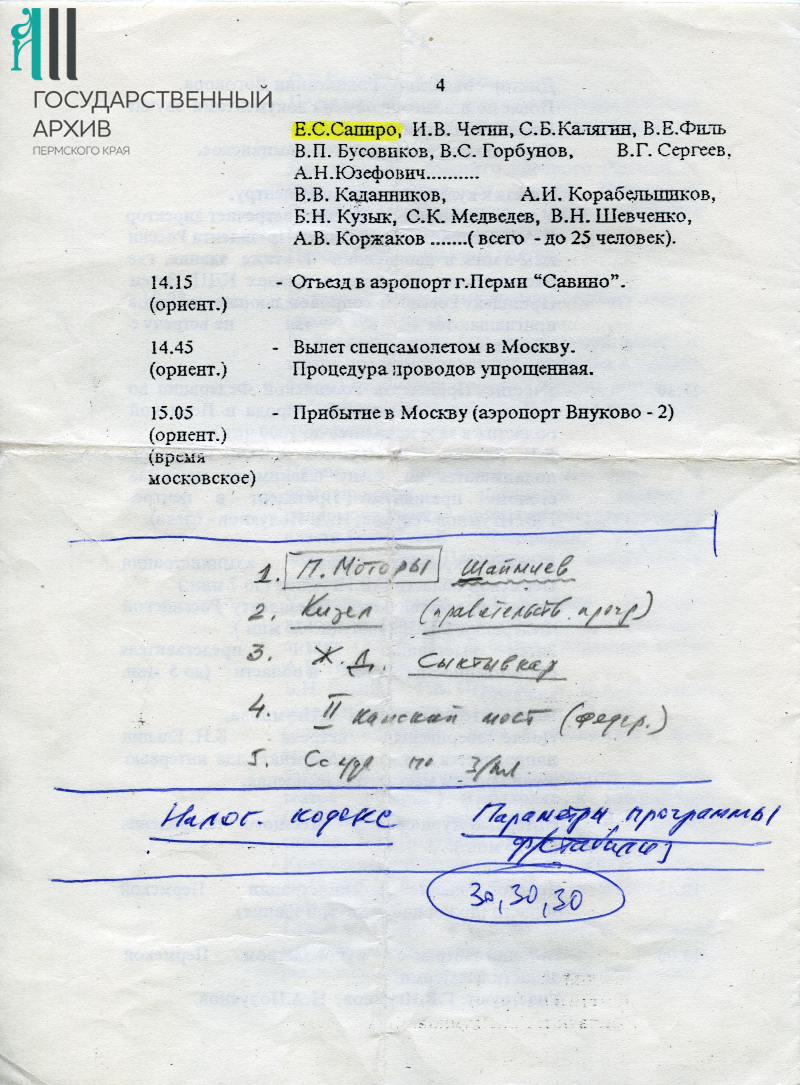 ГОСУДАРСТВЕННЫЙ
АРХИВ
ПЕРМСКОГО КРАЯ
4
Е.С.Сапиро, И.В. Четин, С.Б.Калягин, В.Е.Филь
В.П. Бусовиков, В.С. Горбунов, В.Г. Сергеев,
А.Н.Юзефович..........
В.В. Каданников, А.И. Корабельщиков,
Б.Н. Кузык, С.К. Медведев, В.Н. Шевченко,
А.В. Коржаков .......( всего - до 25 человек).
14.15 - Отъезд в аэропорт г.Перми “Савино”.
(ориент.)
14.45 - Вылет спецсамолетом в Москву.
(ориент.) Процедура проводов упрощенная.
15.05 - Прибытие в Москву (аэропорт Внуково - 2)
(ориент.)
(время
московское)
1. П. Моторы Шаймиев
2. Кизел (правительств. прогр)
3. Ж.Д. Сыктывкар
4. II камский мост (федер.)
5. Ссуда по з/пл.
Налог. кодекс Параметры программы
30, 30, 30